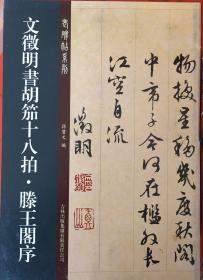 物換星移幾度秋閣
中帝子今何在檻外長
江空自流
徵明
老碑帖系列
孫寶文 編
文徵明書胡笳十八拍·滕王閣序
吉林出版集團有限責任公司